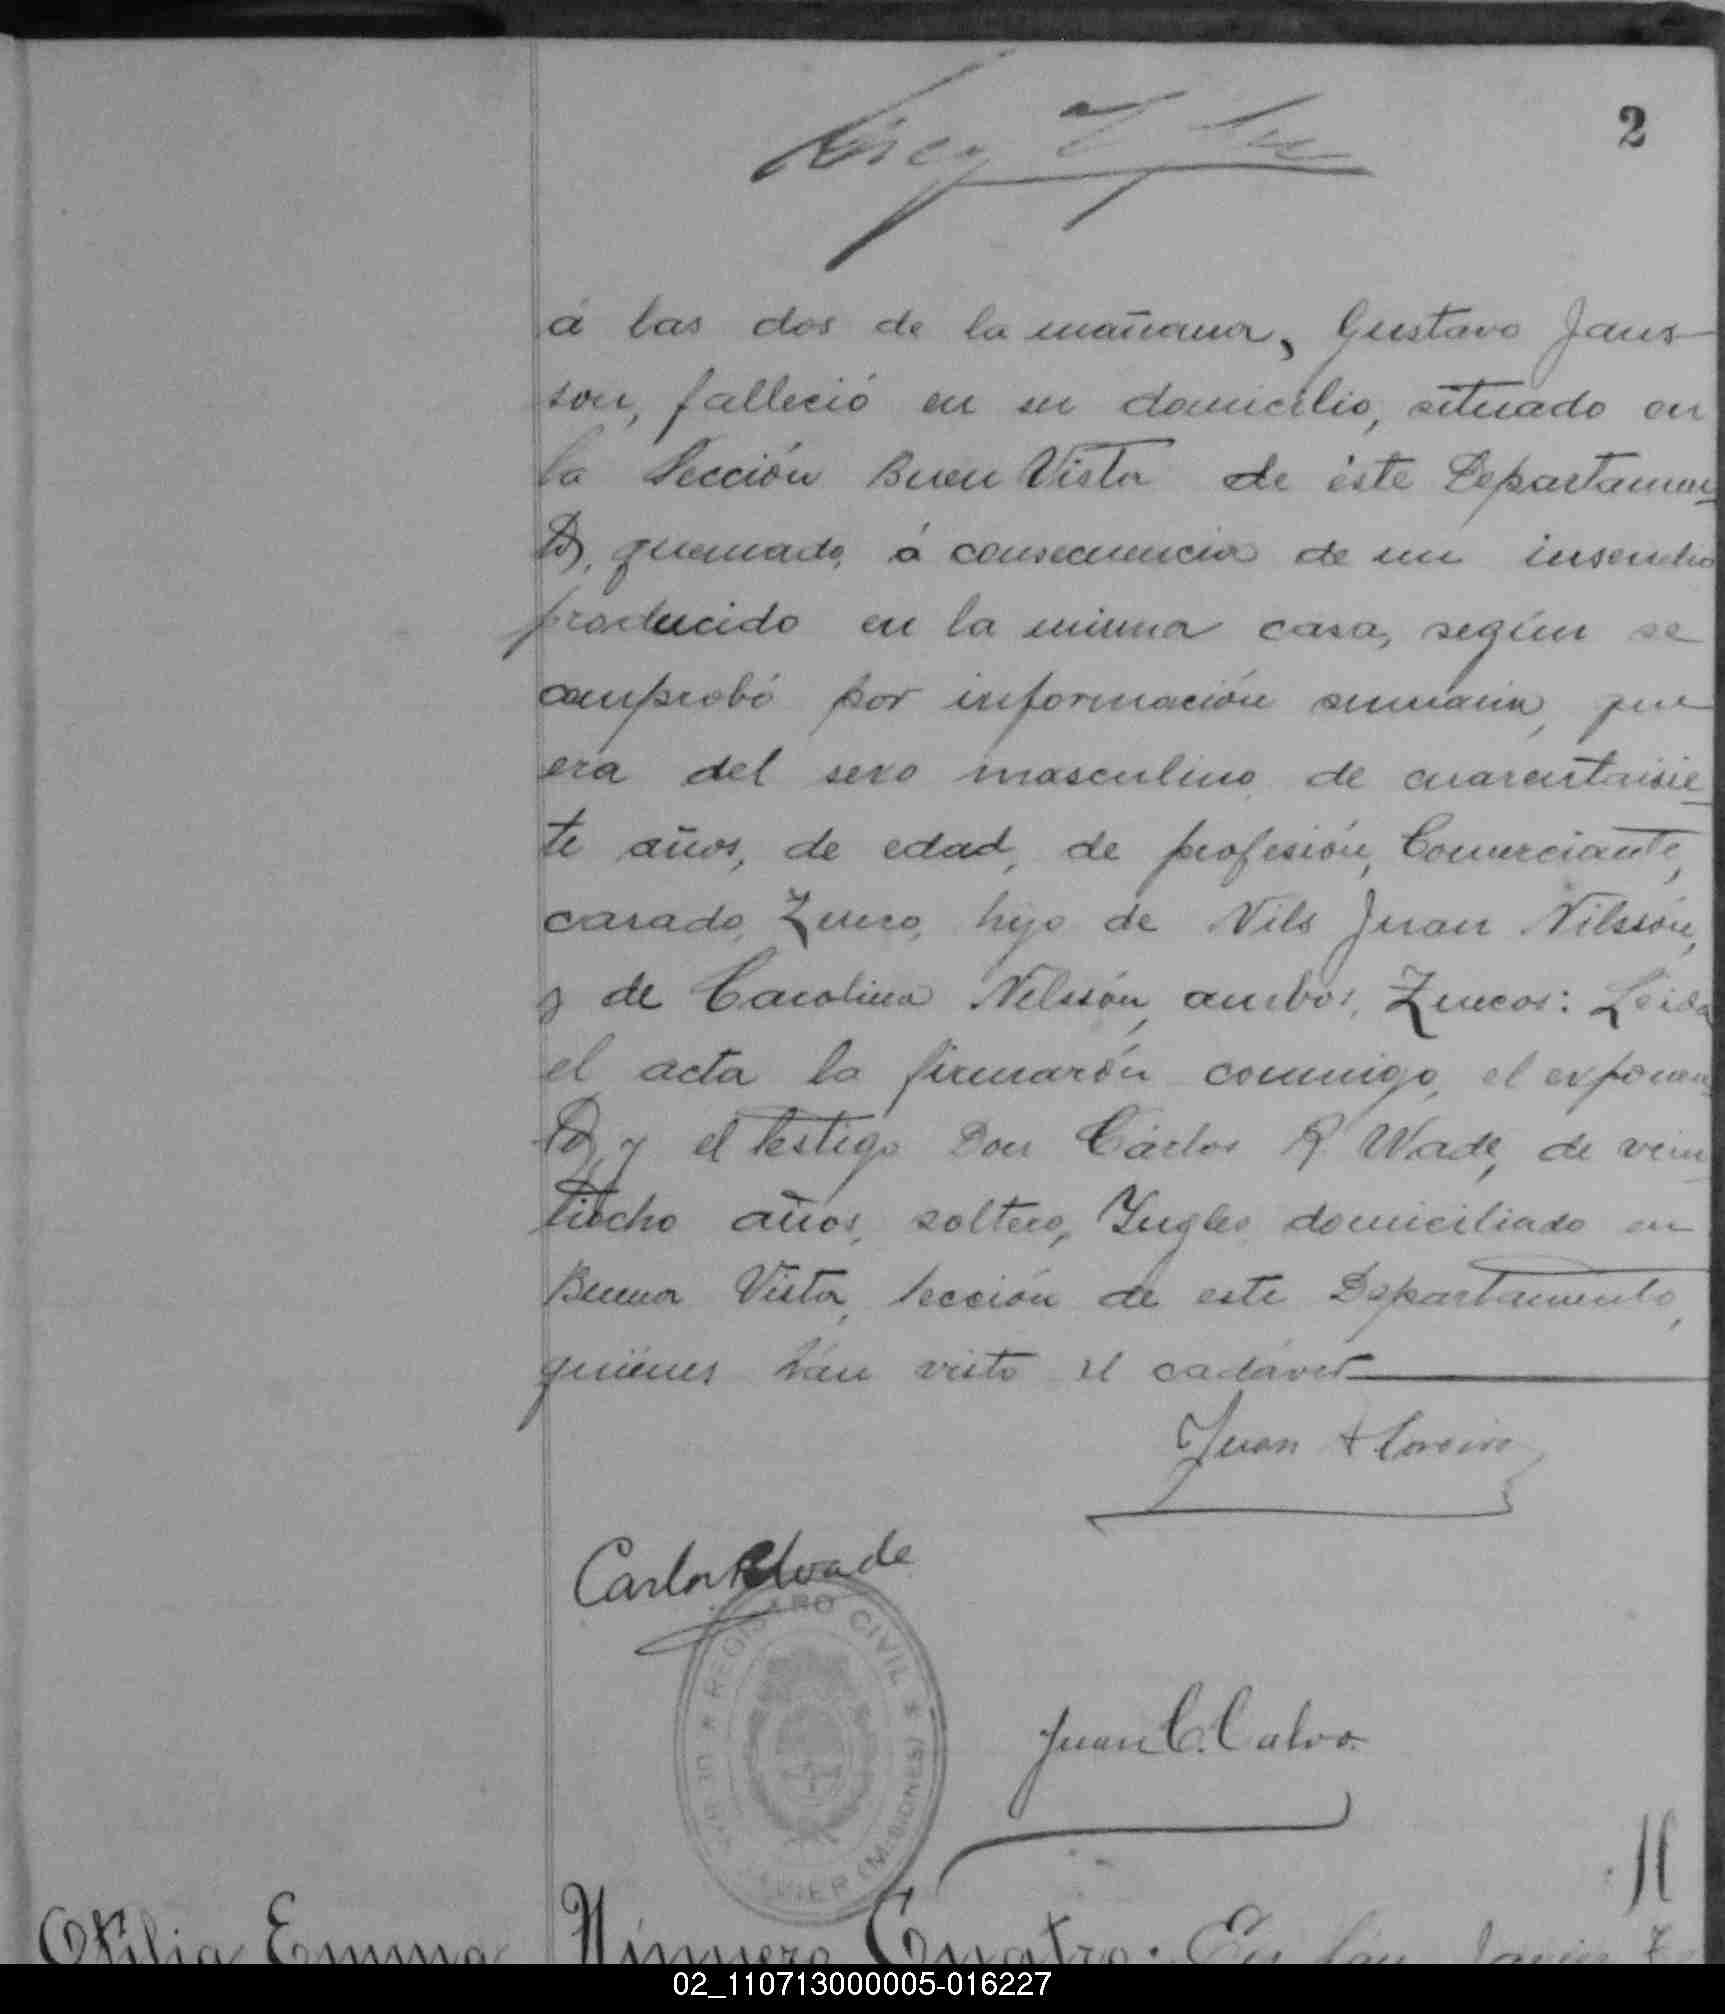 2
á las dos de la mañana, Gustavo Jans-
son, falleció en su domicilio, situado en
la Sección Buen Vista de éste Departamen-
to, quemado, á consecuencia de un insendio
producido en la misma casa, según se
comprobó por información sumaria, que
era del sexo masculino, de cuarentaisie-
te años, de edad, de profesión, Comerciante,
casado, Zueco, hijo de Nils Juan Nilssón,
y de Carolina Nilssón, ambos, Zuecos: Leida
el acta la firmarón conmigo, el exponen-
te, y el testigo Don Cárlos R Wade, de vein-
tiocho años, soltero, Ingles, domiciliado en
Buena Vista, sección de este Departamento,
quiénes hán visto el cadáver
Juan
Carlos R Wade
REGISTRO CIVIL
JAVIER (MISIONES)
Juan C. Calvo
Otilia Emma
Número Cuatro: En San Javier
02_110713000005-016227